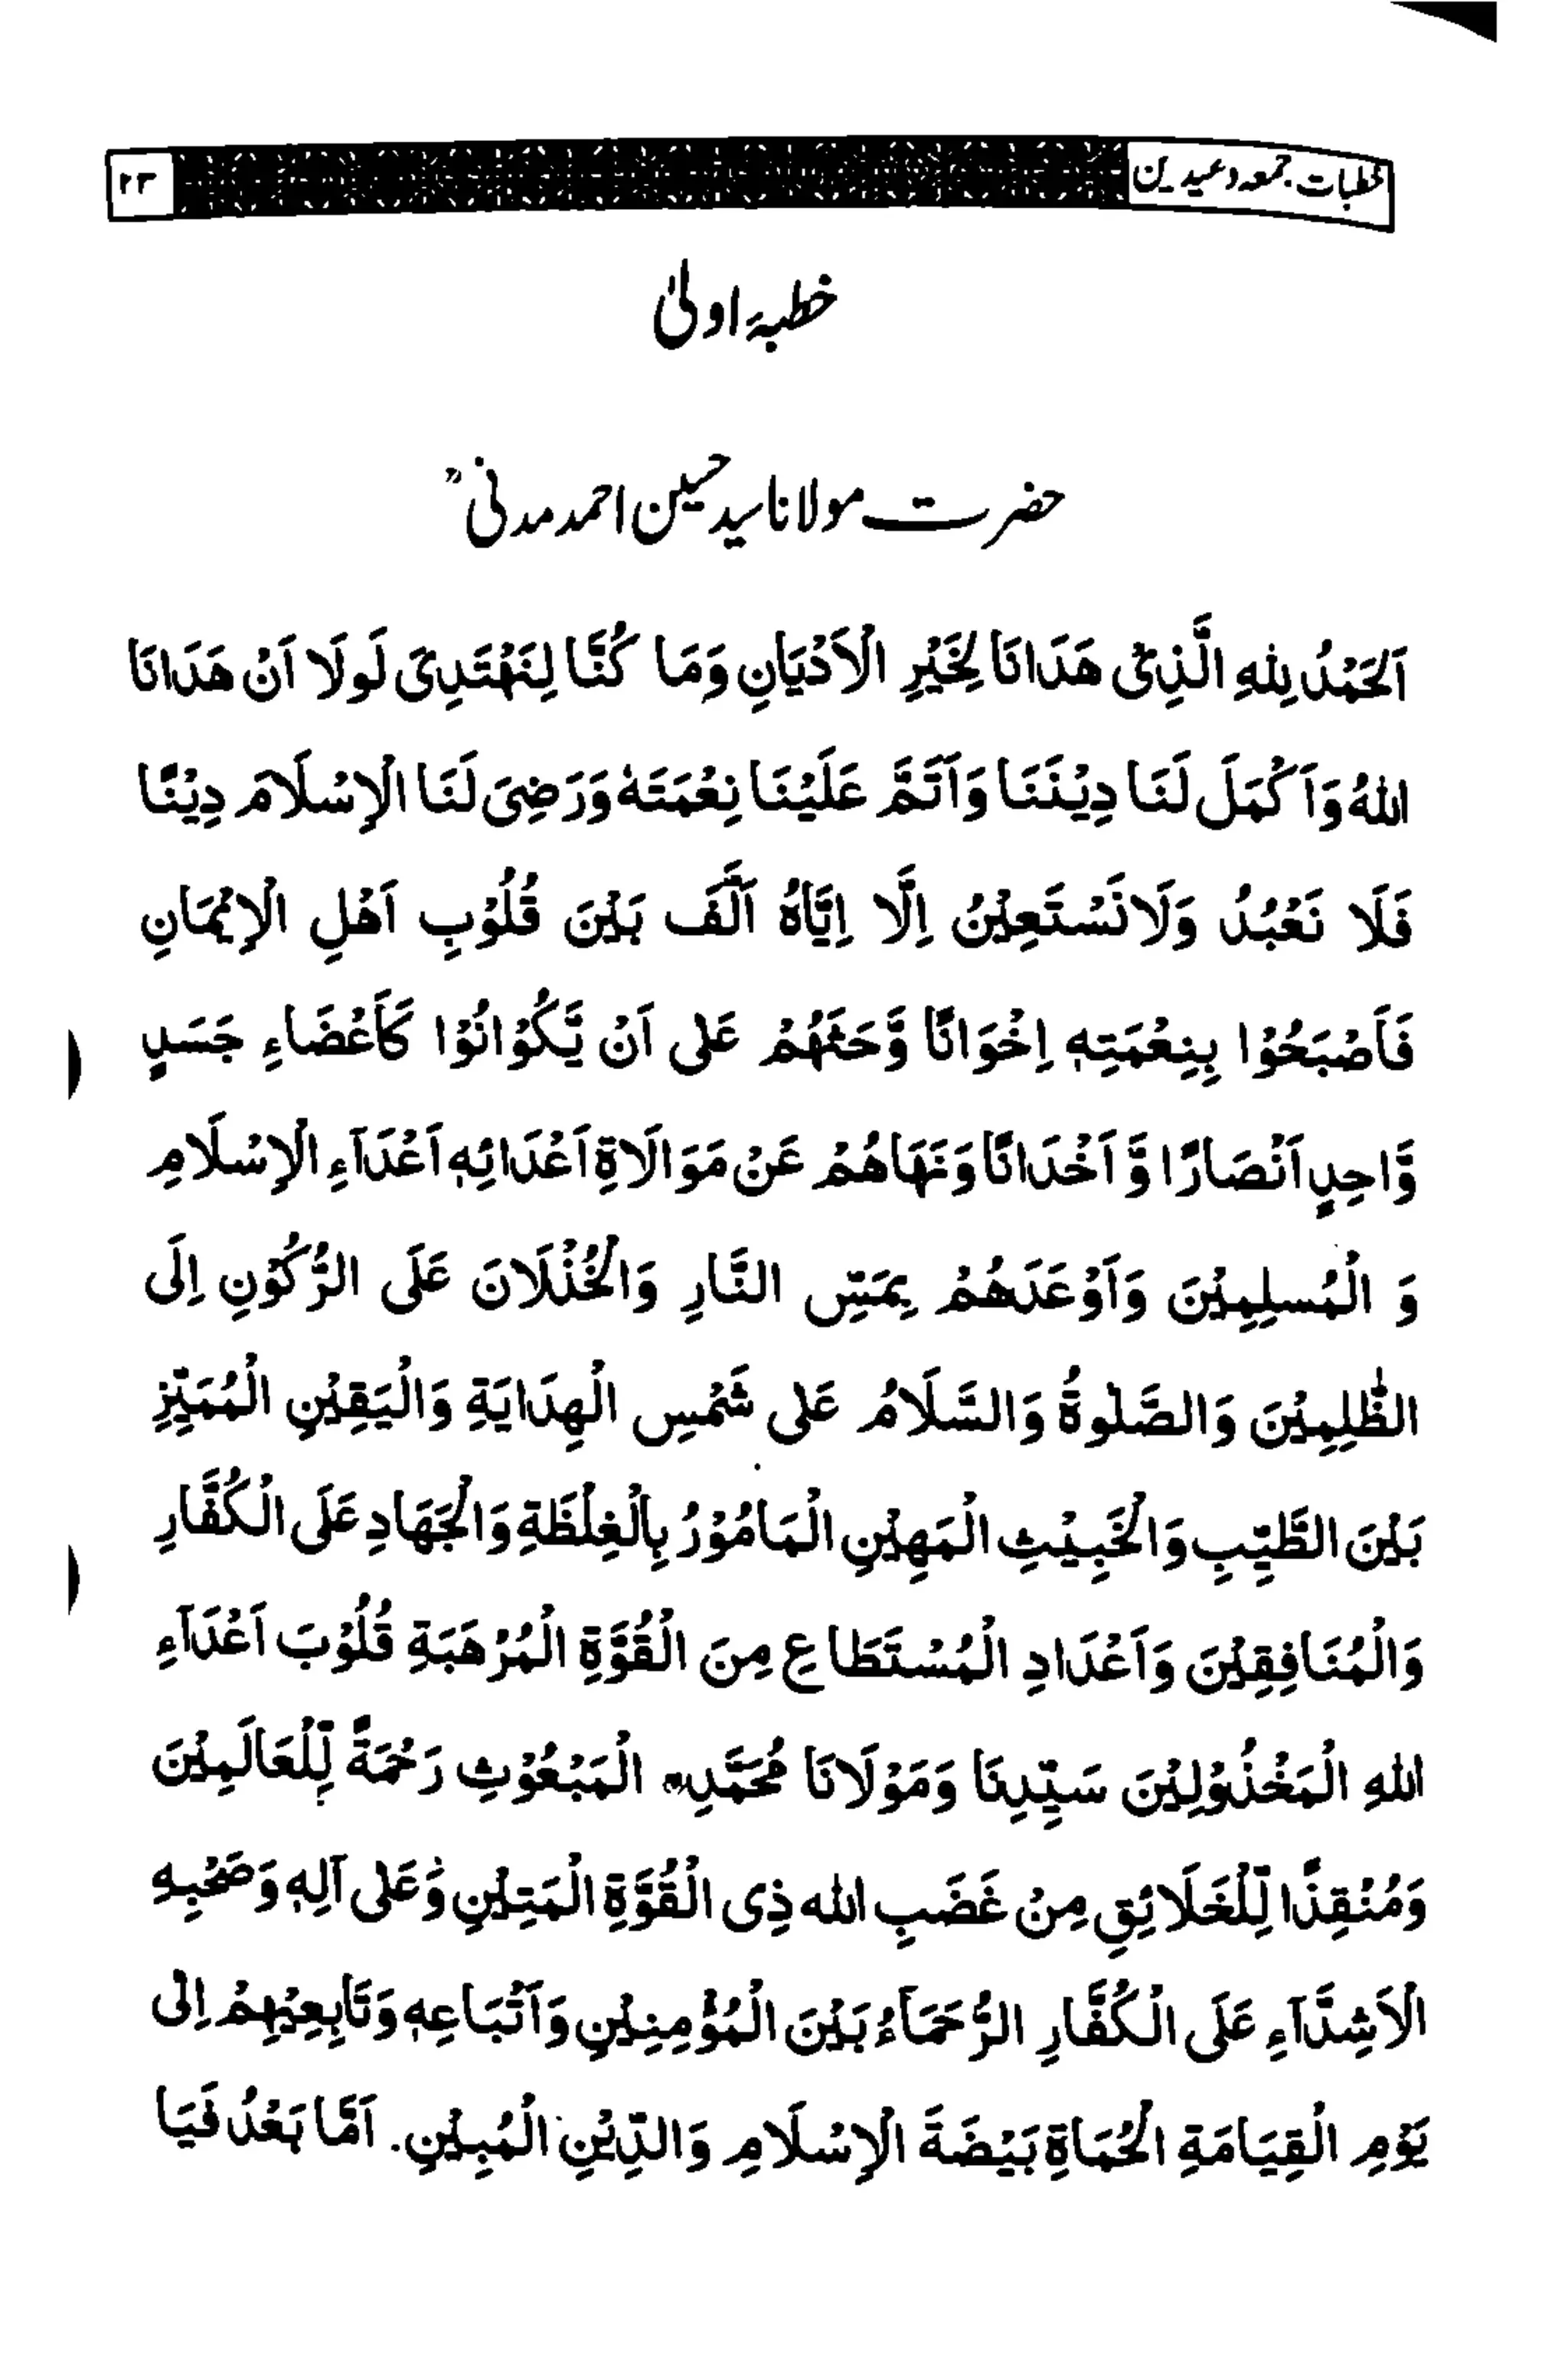 خطبات جمعہ وعیدین
۲۳
خطبۂ اولیٰ
حضرت مولانا سید حسین احمد مدنیؒ
اَلحَمْدُ لِلهِ الَّذِیْ هَدَانَا لِخَيْرِ الْاَدْيَانِ وَمَا كُنَّا لِنَهْتَدِیَ لَولَا اَنْ هَدَانَا
اللهُ وَاَكْمَلَ لَنَا دِيْنَنَا وَاَتَمَّ عَلَيْنَا نِعْمَتَهٗ وَرَضِیَ لَنَا الْاِسْلَامَ دِيْنًا
فَلَا نَعْبُدُ وَلَا نَسْتَعِيْنُ اِلَّا اِيَّاهُ اَلَّفَ بَيْنَ قُلُوْبِ اَهْلِ الْاِيْمَانِ
فَاَصْبَحُوْا بِنِعْمَتِهٖ اِخْوَانًا وَّحَثَّهُمْ عَلٰی اَنْ يَّكُوْانُوْا كَاَعْضَاءِ جَسَدٍ
وَّاحِدٍ اَنْصَارًا وَّ اَخْدَانًا وَنَهَاهُمْ عَنْ مَوَالَاةِ اَعْدَائِهٖ اَعْدَآءِ الْاِسْلَامِ
وَ الْمُسلِمِيْنَ وَاَوْعَدَهُمْ بِمَسِّ النَّارِ وَالْخُذْلَانَ عَلَى الرُّكُوْنِ اِلَى
الظّٰلِمِيْنَ وَالصَّلٰوةُ وَالسَّلَامُ عَلٰی شَمْسِ الْهِدَايَةِ وَالْيَقِيْنِ الْمُمَيِّزِ
بَيْنَ الطَّيِّبِ وَالْخَبِيْثِ الْمَهِيْنِ الْمَامُوْرُ بِالْغِلْظَةِ وَالْجَهَادِ عَلَى الْكُفَّارِ
وَالْمُنَافِقِيْنَ وَاَعْدَادِ الْمُسْتَطَاعِ مِنَ الْقُوَّةِ الْمُرْهَبَةِ قُلُوْبَ اَعْدَآءِ
اللهِ الْمَخْذُوْلِيْنَ سَيِّدِنَا وَمَوْلَانَا مُحَمَّدِ الْمَبْعُوْثِ رَحْمَةً لِّلْعَالَمِيْنَ
وَمُنْقِذًا لِّلْخَلَائِقِ مِنْ غَضَبِ الله ذِی الْقُوَّةِ الْمَتِيْنِ وَعَلٰی آلِهٖ وَصَحْبِهِ
الْاَشِدَّآءِ عَلَى الْكُفَّارِ الرُّحَمَآءُ بَيْنَ الْمُؤْمِنِيْنِ وَاَتْبَاعِهٖ وَتَابِعِيْهِمْ اِلٰی
يَوْمِ الْقِيَامَةِ الْحُمَاةِ بَيْضَةَ الْاِسْلَامِ وَالدِّيْنِ الْمُبِيْنِ. اَمَّا بَعْدُ فَيَا